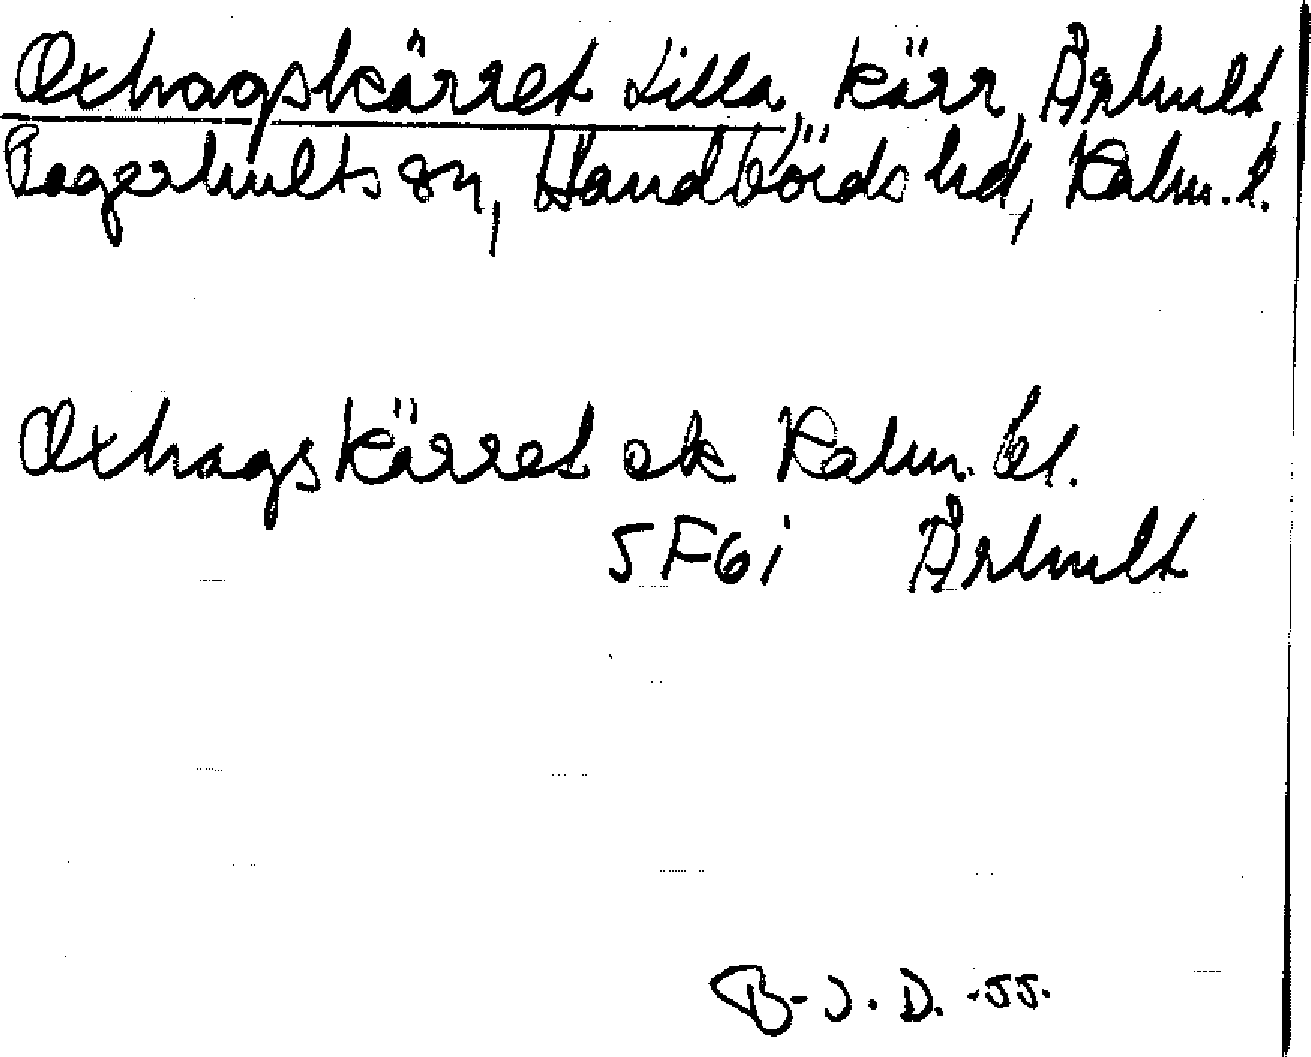 Oxhagskärret Lilla, kärr, Århult
Fagerhults sn, Handbörds hd, Kalm. l.
Oxhagskärret ek Kalm. bl.
5F6i Århult
B-J. D. -55.